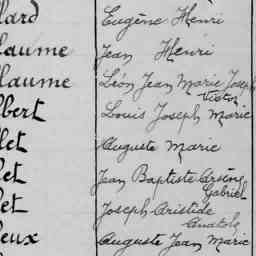 llard Eugène Henri
laume Jean Henri
llaume Léon Jean Marie Joseph
Victor
lbert Louis Joseph Marie
llet Auguste Marie
let Jean Baptiste Arsène
Gabriel
let Joseph Aristide
Anatole
eux Auguste Jean Marie